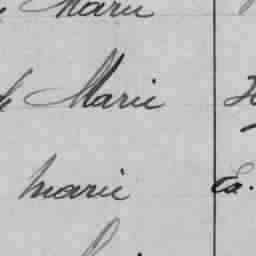 Marie
Marie
marie Ea.